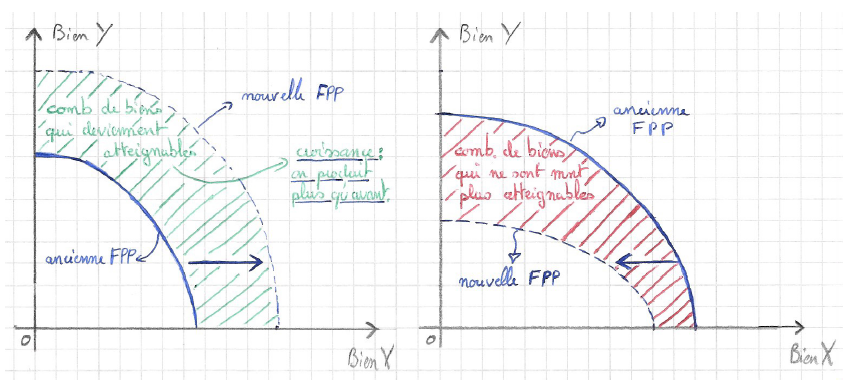 Bien Y
nouvelle FPP
comb de biens
qui deviennent
atteignables
croissance :
on produit
plus qu'avant.
ancienne FPP
0
Bien X
Bien Y
ancienne
FPP
comb. de biens
qui ne sont mnt
plus atteignables
nouvelle FPP
0
Bien X